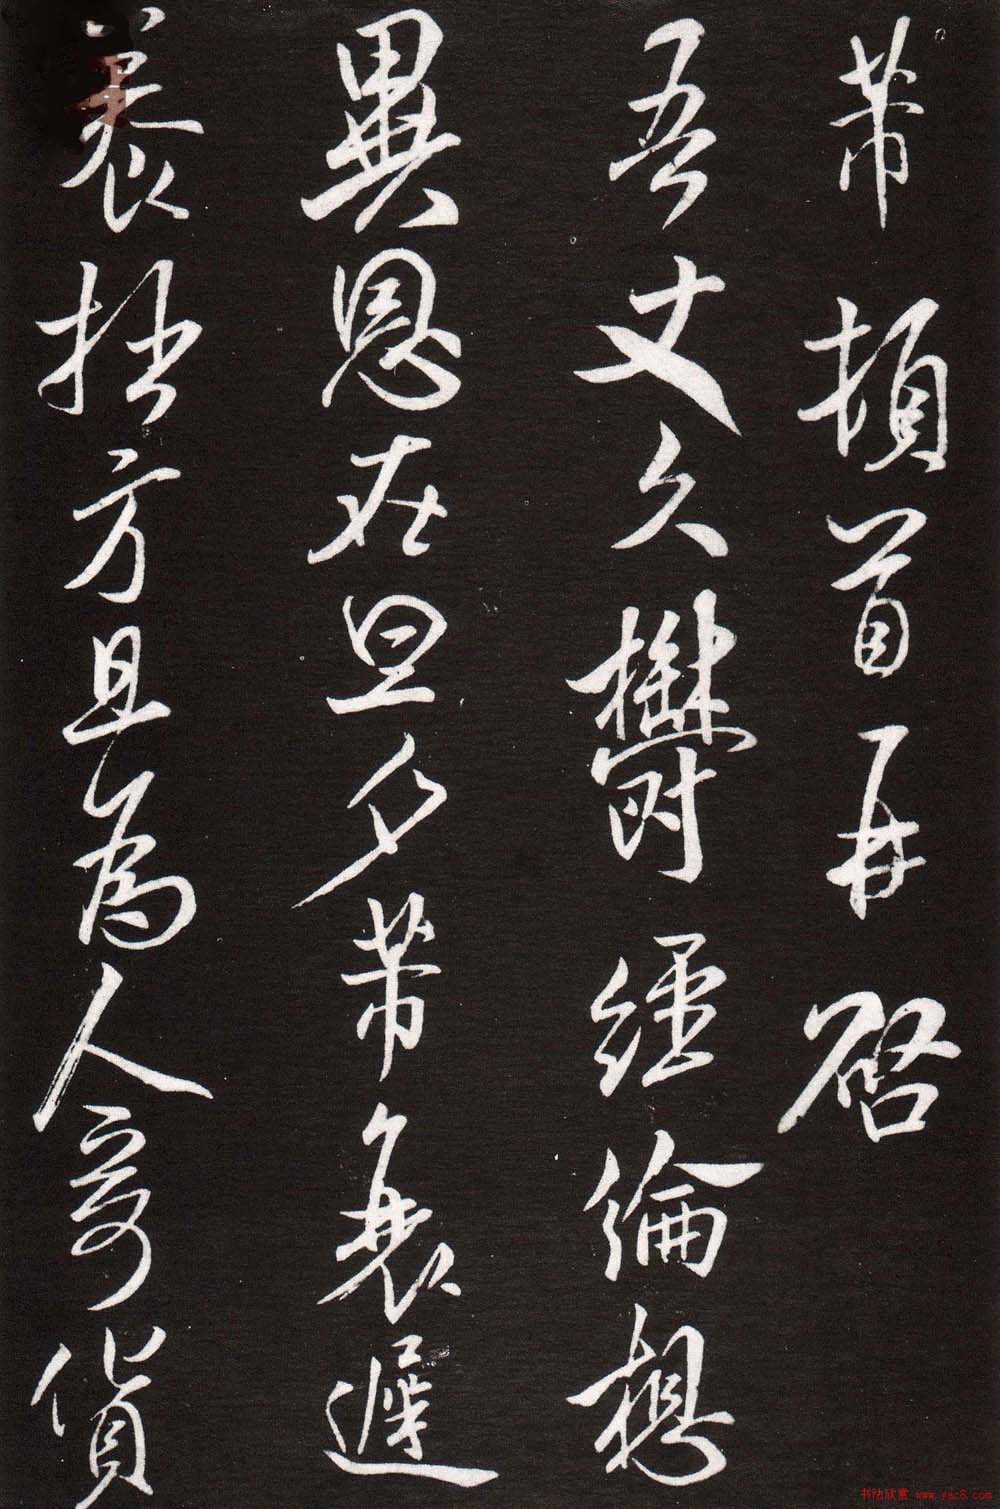 芾頓首再啓
吾丈久鬱經綸想
異恩在旦夕芾衰遲
養拙方且為人奇貨
书法欣赏 www.yac8.com